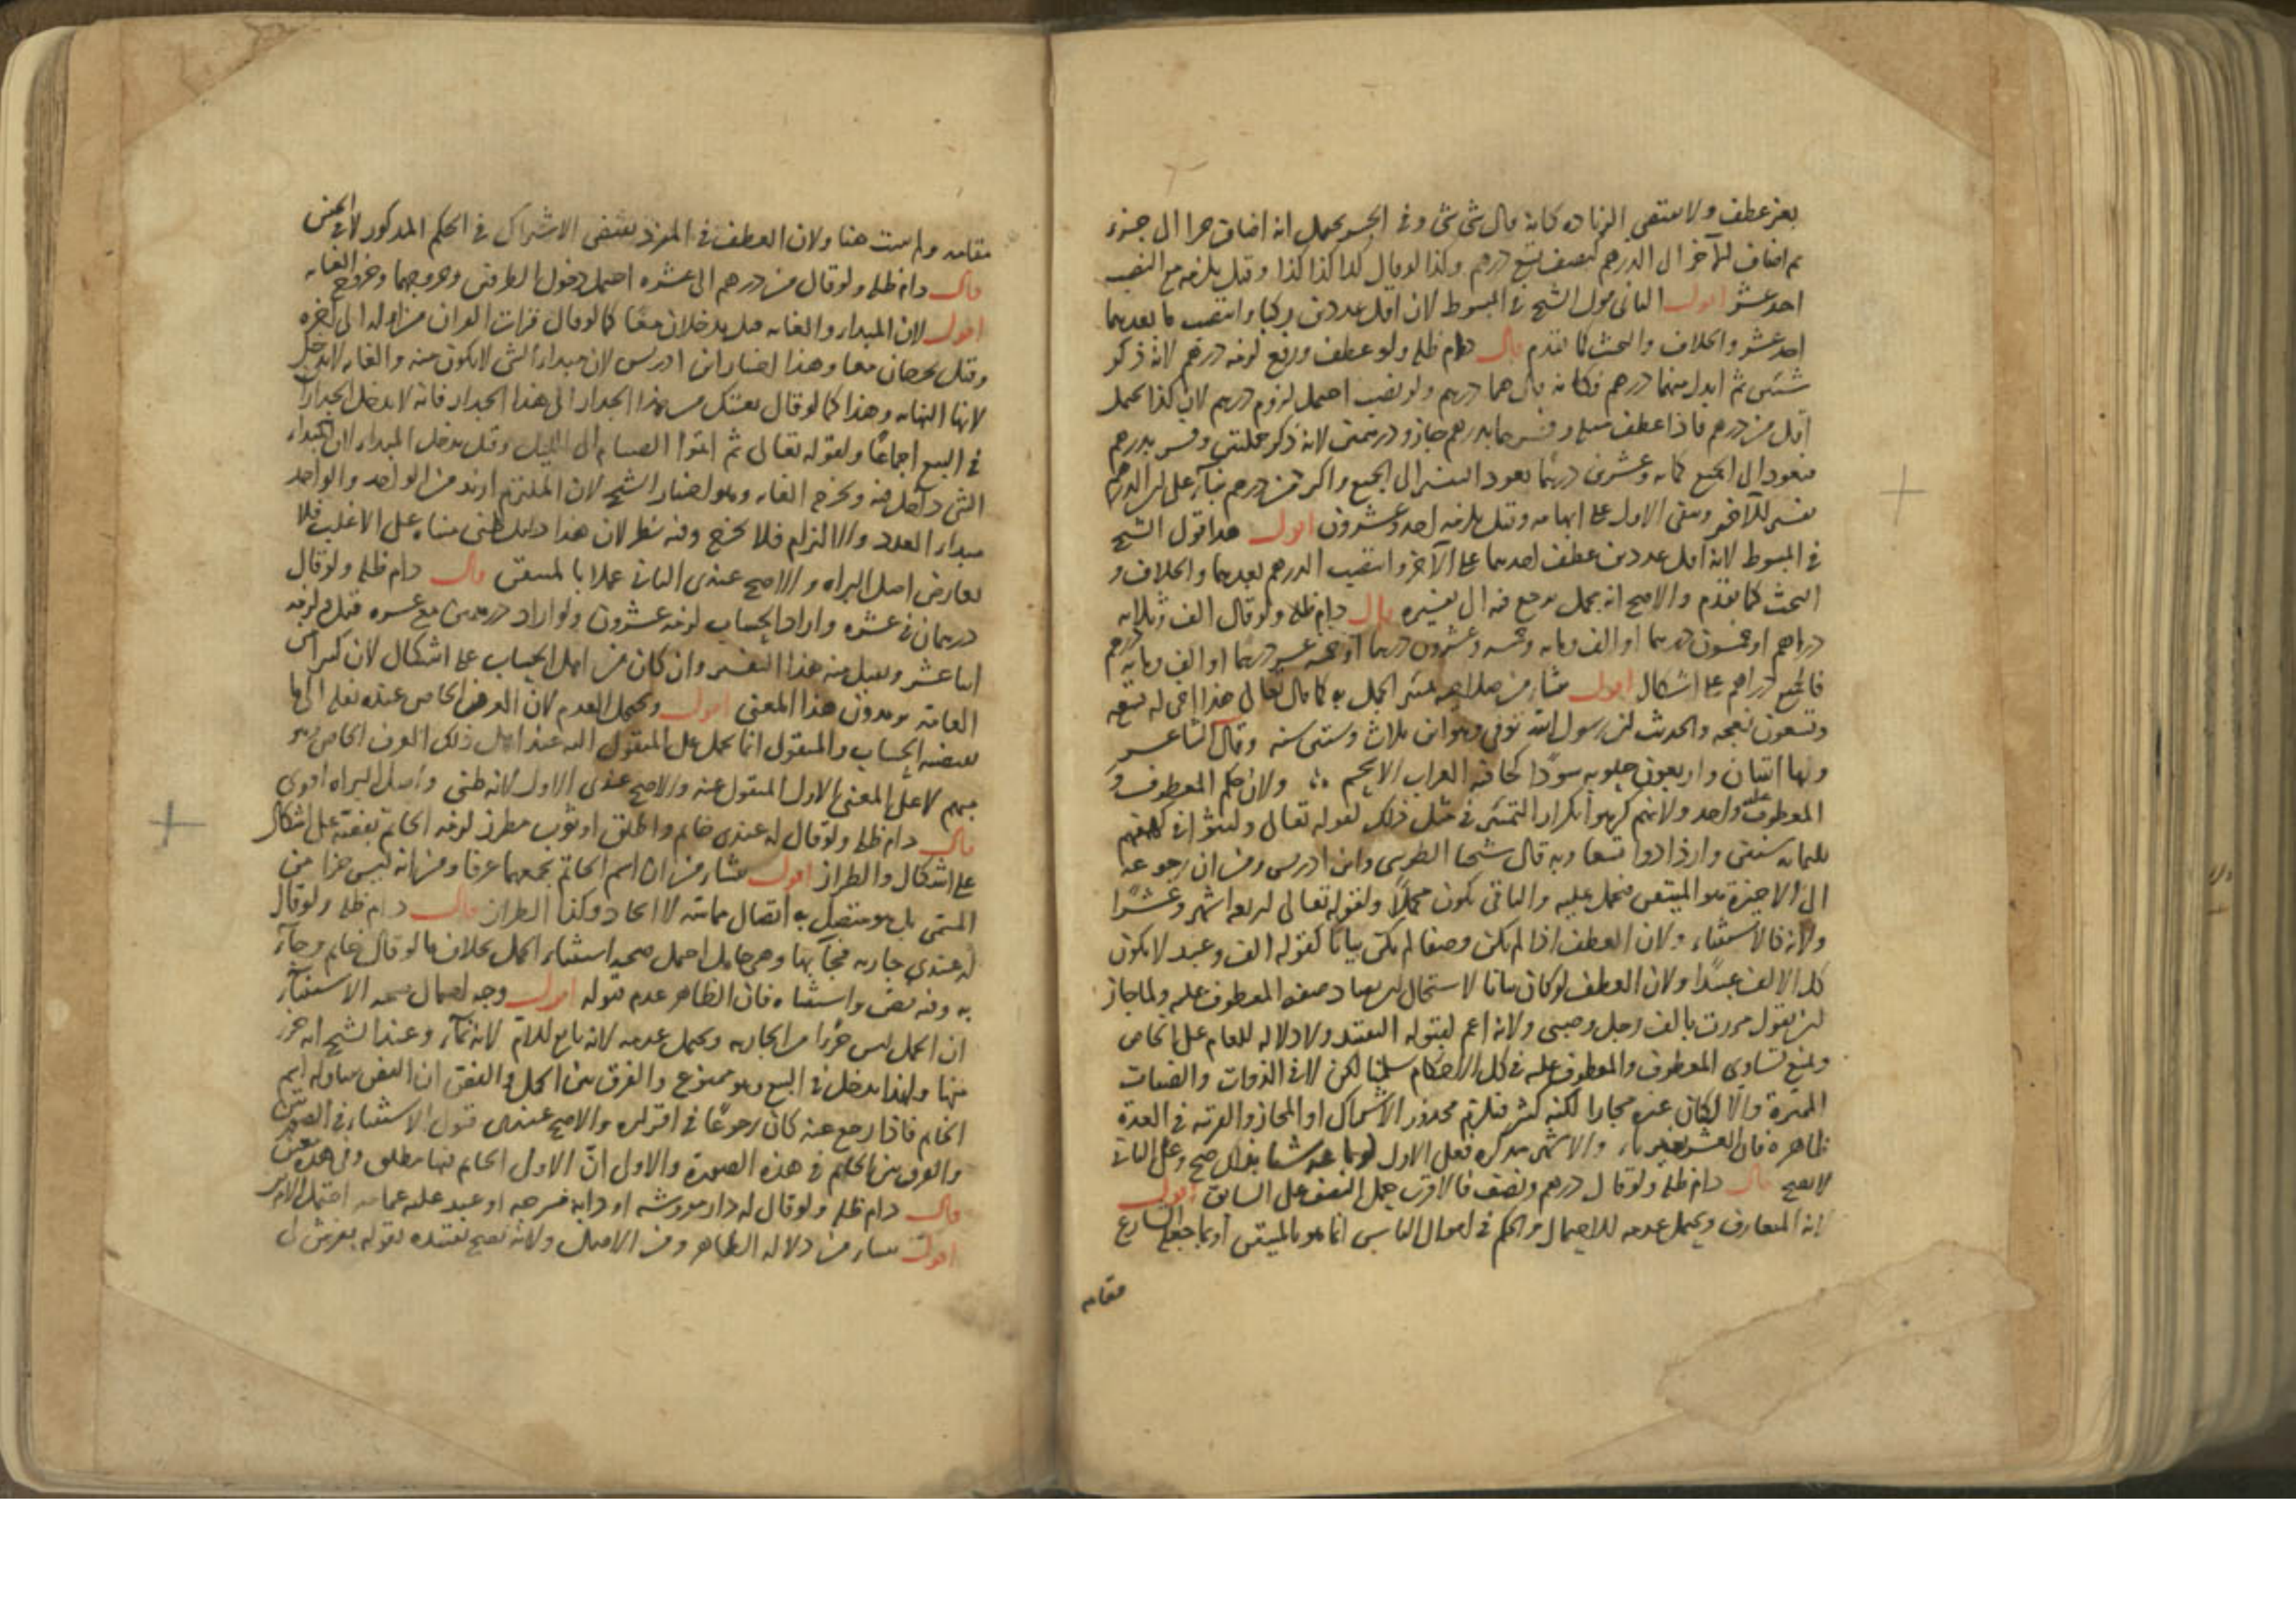 بغير عطف ولا يقتضي الزيادة كانه قال شي شي وفي الجر يحتمل انه اضاف جزا الى جزء
ثم اضاف الآخر الى الدرهم كنصف تسع درهم وكذا لو قال كذا كذا كذا وقيل يلزمه مع النصب
احد عشر اقول الثاني قول الشيخ في المبسوط لان اقل عددين ركبا وانتصب ما بعدهما
احد عشر والخلاف والبحث كما تقدم قال دام ظله ولو عطف ورفع لزمه درهم لانه ذكر
شيئين ثم ابدل منهما درهم فكانه قال هما درهم ولو نصب احتمل لزوم درهم لان كذا يحتمل
اقل من درهم فاذا عطف مثله وفسرهما بدرهم جاز ودرهمين لانه ذكر جملتين وفسر بدرهم
فيعود الى الجميع كمائة وعشرين درهما يعود التفسير الى الجميع واكثر من درهم بناء على ان الدرهم
تفسير للآخر وبقي الاول على ابهامه وقيل يلزمه احد وعشرون اقول هذا قول الشيخ
في المبسوط لانه اقل عددين عطف احدهما على الآخر وانتصب الدرهم بعدهما والخلاف و
البحث كما تقدم والاصح انه مجمل يرجع فيه الى تفسيره قال دام ظله ولو قال الف وثلاثة
دراهم او خمسون درهما او الف ومائة وخمسة وعشرون درهما او خمسة عشر درهما او الف ومائة درهم
فالجميع دراهم على اشكال اقول منشأه من صلاحية مميز الجمل به كما قال تعالى هذا اخي له تسع
وتسعون نعجة والحديث ان رسول الله توفي وهو ابن ثلاث وستين سنة وقال الشاعر
ولها اثنتان واربعون حلوبة سودا كخافية الغراب الاسحم ولان حكم المعطوف و
المعطوف عليه واحد ولانهم كرهوا تكرار التمييز في مثل ذلك لقوله تعالى ولبثوا في كهفهم
ثلثمائة سنين وازدادوا تسعا وبه قال شيخنا الطوسي وابن ادريس ومن ان رجوعه
الى الاخيرة هو المتيقن فيحمل عليه والباقي يكون مجملا ولقوله تعالى اربعة اشهر وعشرا
ولانه كالاستثناء ولان العطف اذا لم يكن وصفا لم يكن بيانا كقوله الف وعبد لا يكون
كل الالف عبيدا ولان العطف لو كان بيانا لاستحال تضاد صفة المعطوف عليه ولما جاز
ان يقول مررت بالف رجل وصبي ولانه اعم لقبوله التقييد ولا دلالة للعام على الخاص
ويمنع تساوي المعطوف والمعطوف عليه في كل الاحكام سلمنا لكن لا في الذوات والصفات
المميزة والا لكان عينه مجازا لكنه كثير فيلزم محذور الاشتراك او المجاز والقرينة في العدة
لا يصح قال دام ظله ولو قال درهم ونصف فالاقرب حمل النصف على السابق اقول
لانه المتعارف ويحتمل عدمه للاحتمال والحكم في اموال الناس انما هو بالمتيقن او بما جعله الشارع
مقامه
مقامه وليست هنا ولان العطف في المفرد يقتضي الاشتراك في الحكم المذكور لا في الجنس
قال دام ظله ولو قال من درهم الى عشرة احتمل دخول الطرفين وخروجهما وخروج الغاية
اقول لان المبدأ والغاية قيل يدخلان معا كما لو قال قرات القران من اوله الى آخره
وقيل يخرجان معا وهذا اختيار ابن ادريس لان مبدأ الشي لا يكون منه والغاية لا تدخل
لانها النهاية وهذا كما لو قال بعتك من هذا الجدار الى هذا الجدار فانه لا يدخل الجدارا
في البيع اجماعا ولقوله تعالى ثم اتموا الصيام الى الليل وقيل يدخل المبدأ لان مبتدأ
الشي داخل فيه ويخرج الغاية وهو اختيار الشيخ لان الملتزم ازيد من الواحد والواحد
مبدأ العدد والالتزام فلا يخرج وفيه نظر لان هذا دليل ظني بناء على الاغلب فلا
يعارض اصل البراة والاصح عندي الثاني عملا بالمتيقن قال دام ظله ولو قال
درهمان في عشرة واراد الحساب لزمه عشرون ولو اراد درهمين مع عشرة قبل ولزمه
اثنا عشر ويقبل منه هذا التفسير وان كان من اهل الحساب على اشكال لان كثيرا من
العامة يريدون هذا المعنى اقول ويحتمل العدم لان العرف الخاص عنده نقله الى ما
يقتضيه الحساب والمنقول انما يحمل على المنقول اليه عند اهل ذلك العرف الخاص وهو
منهم لا على المعنى الاول المنقول عنه والاصح عندي الاول لانه ظني واصل البراة اقوى
قال دام ظله ولو قال له عندي خاتم واطلق او ثوب مطرز لزمه الخاتم بفصه على اشكال
على اشكال والطراز اقول منشأه من ان اسم الخاتم يجمعهما عرفا ومن انه ليس جزا من
المسمى بل هو متصل به اتصال مماسة لا اتحاد وكذا الطراز قال دام ظله ولو قال
له عندي جارية فجآء بها وهي حامل احتمل صحة استثناء الحمل بخلاف ما لو قال خاتم وجآء
به وفيه فص واستثناه فان الظاهر عدم قبوله اقول وجه احتمال صحة الاستثناء
ان الحمل ليس جزءا من الجارية ويحتمل عدمه لانه تابع للام لانه نمآء وعند الشيخ انه جزء
منها ولهذا يدخل في البيع وهو ممنوع والفرق بين الحمل والفص ان الفص تناوله اسم
الخاتم فاذا رجع عنه كان رجوعا في اقراره والاصح عندي قبول الاستثناء في الصورتين
والفرق بين الحكم في هذه الصورة والاول ان الاول الخاتم فيها مطلق وفي هذه معين
قال دام ظله ولو قال له دار مفروشة او دابة مسرجة او عبد عليه عمامة احتمل الامرين
اقول ينشأ من دلالة الظاهر ومن الاصل ولانه يصح تقييده بقوله بفرش لي